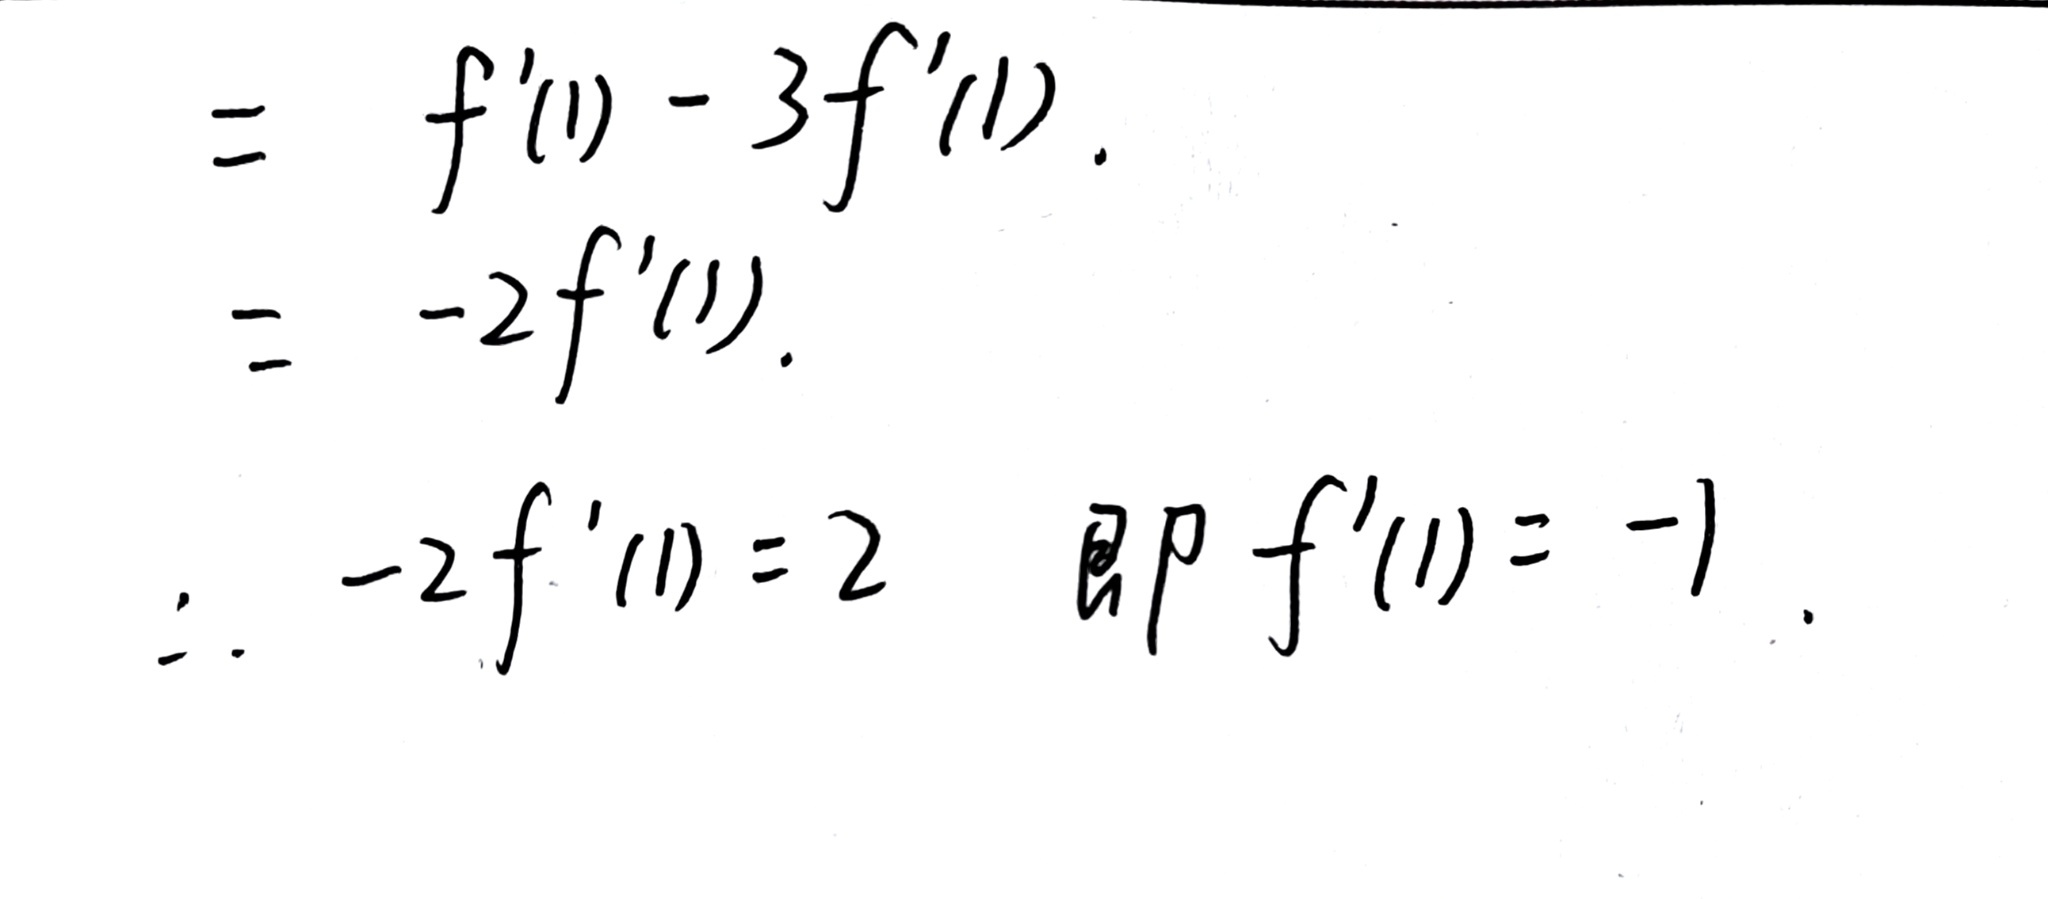 = f'(1) - 3f'(1).
= -2f'(1).
∴ -2f'(1) = 2 即 f'(1) = -1.